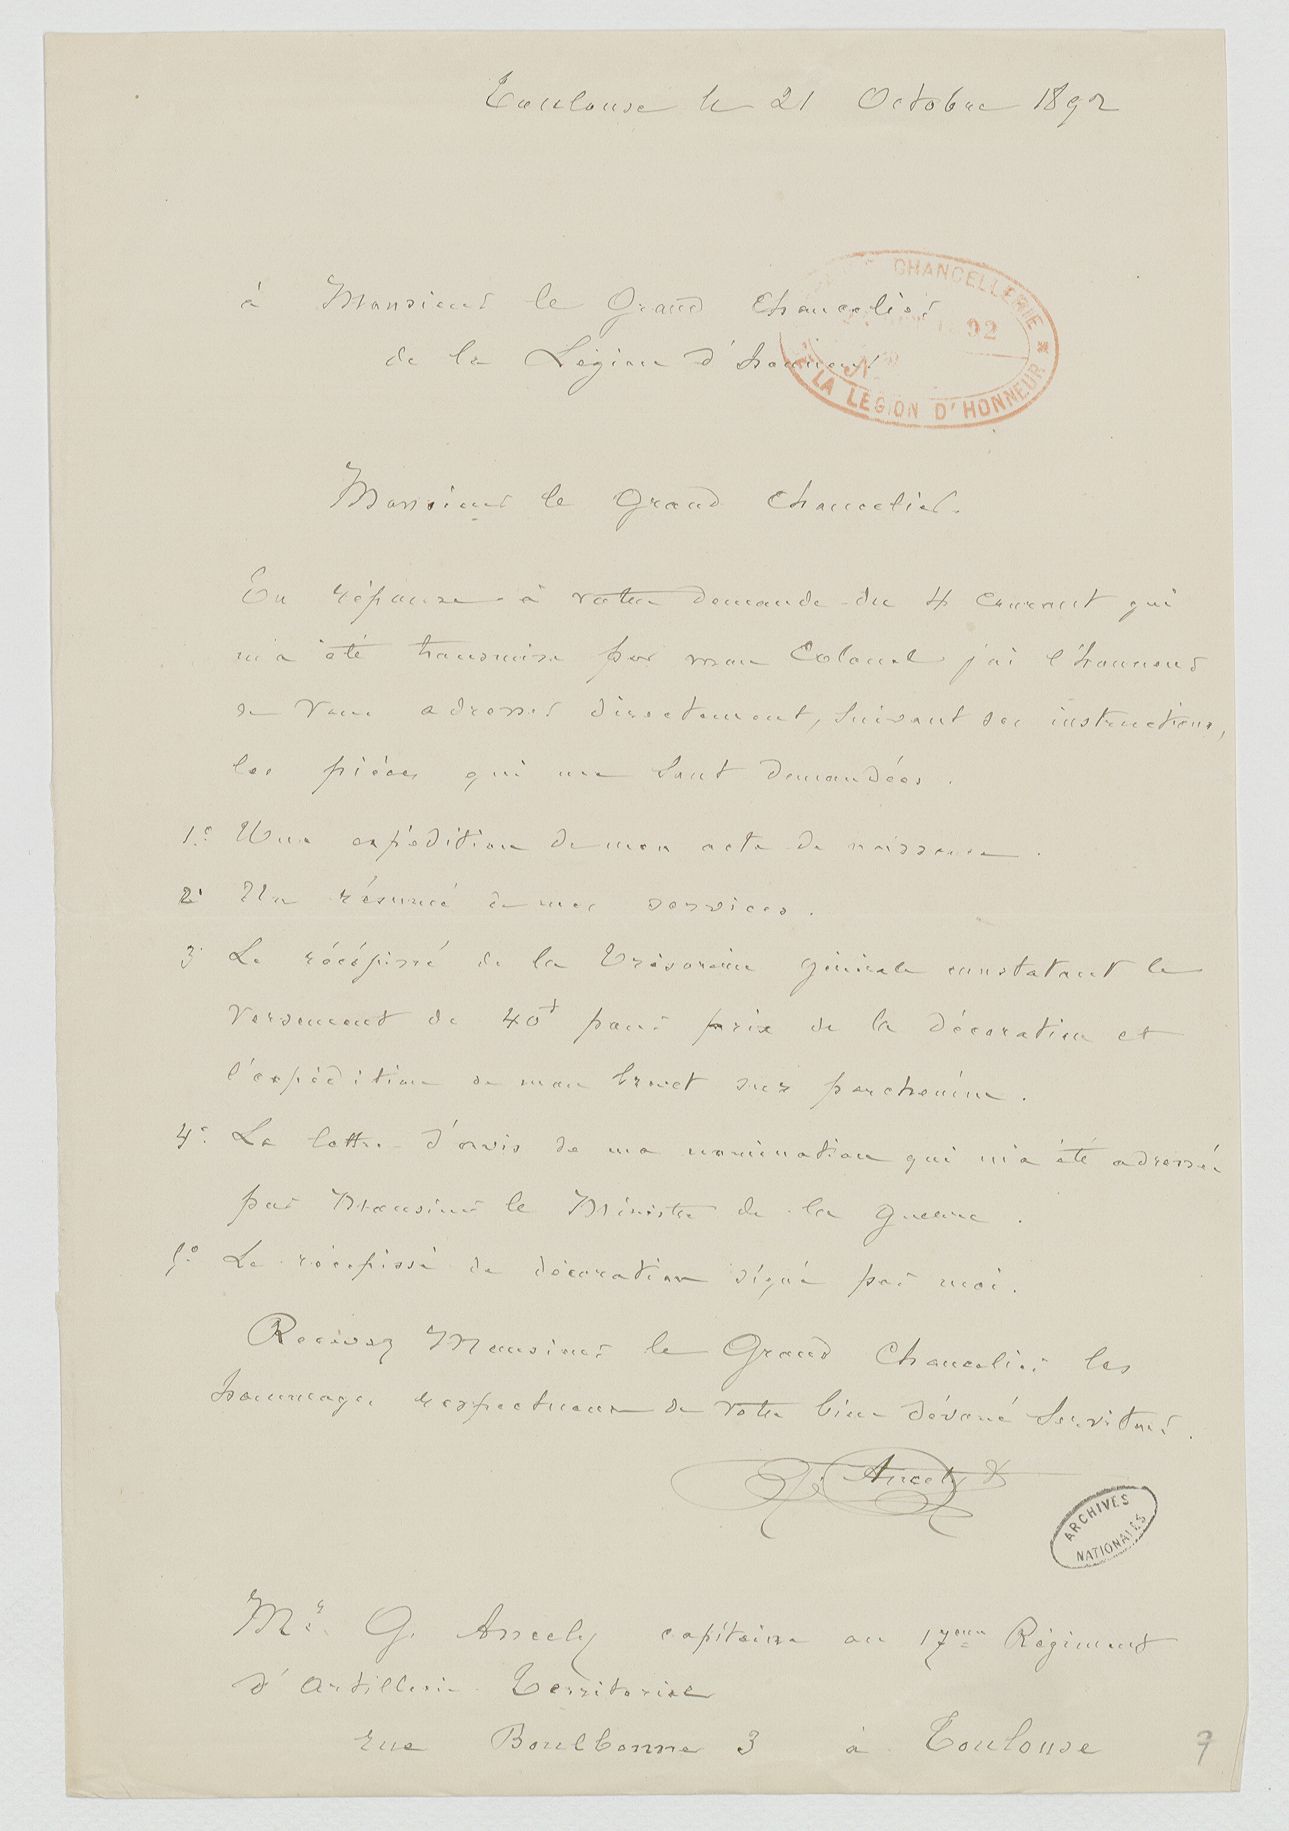 Toulouse le 21 Octobre 1892
à Monsieur le Grand Chancelier
de la Légion d'honneur
CHANCELLERIE *
92
N°
LA LEGION D'HONNEUR
Monsieur le Grand Chancelier.
En réponse à votre demande du 4 courant qui
m'a été transmise par mon Colonel j'ai l'honneur
de vous adresser directement, suivant ses instructions,
les pièces qui me sont demandées.
1° Une expédition de mon acte de naissance.
2° Un résumé de mes services.
3° Le récépissé de la Trésorerie générale constatant le
versement de 40f pour prix de la décoration et
l'expédition de mon brevet sur parchemin.
4° La lettre d'avis de ma nomination qui m'a été adressée
par Monsieur le Ministre de la guerre.
5° Le récépissé de décoration signé par moi.
Recevez Monsieur le Grand Chancelier les
hommages respectueux de votre bien dévoué serviteur.
G. Ancely
ARCHIVES
NATIONALES
Mr. G. Ancely capitaine au 17eme Régiment
d'Artillerie Territorial
rue Boulbonne 3 à Toulouse
9